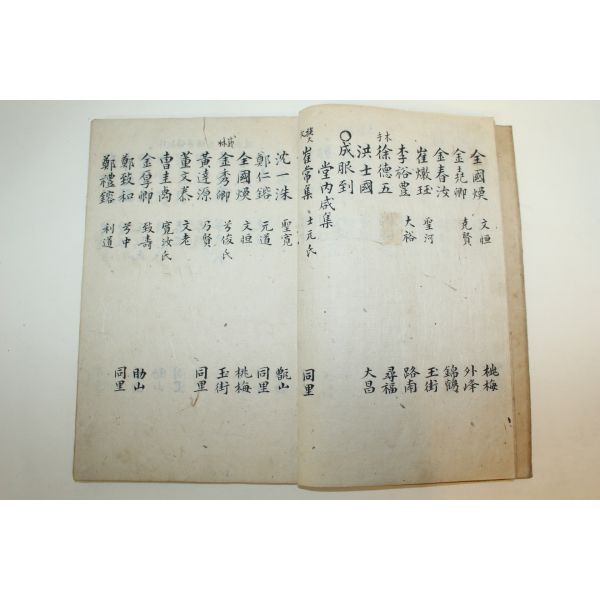 全國煥 文晅 桃梅
金堯卿 堯賢 外峰
金春汝 錦鶴
崔墩珏 聖河 玉街
李裕豊 大裕 路南
徐德五 尋福
洪士國 大昌
○成服到
堂內咸集
崔常集 士元氏 同里
沈一洙 聖寬 甑山
鄭仁鎔 元道 同里
全國煥 文晅 桃梅
金秀卿 芳俊氏 玉街
黃達源 乃賢 同里
董文泰 文老
曹圭禹 寬汝氏
金厚卿 致壽
鄭致和 芳中 助山
鄭禮鎔 利道 同里